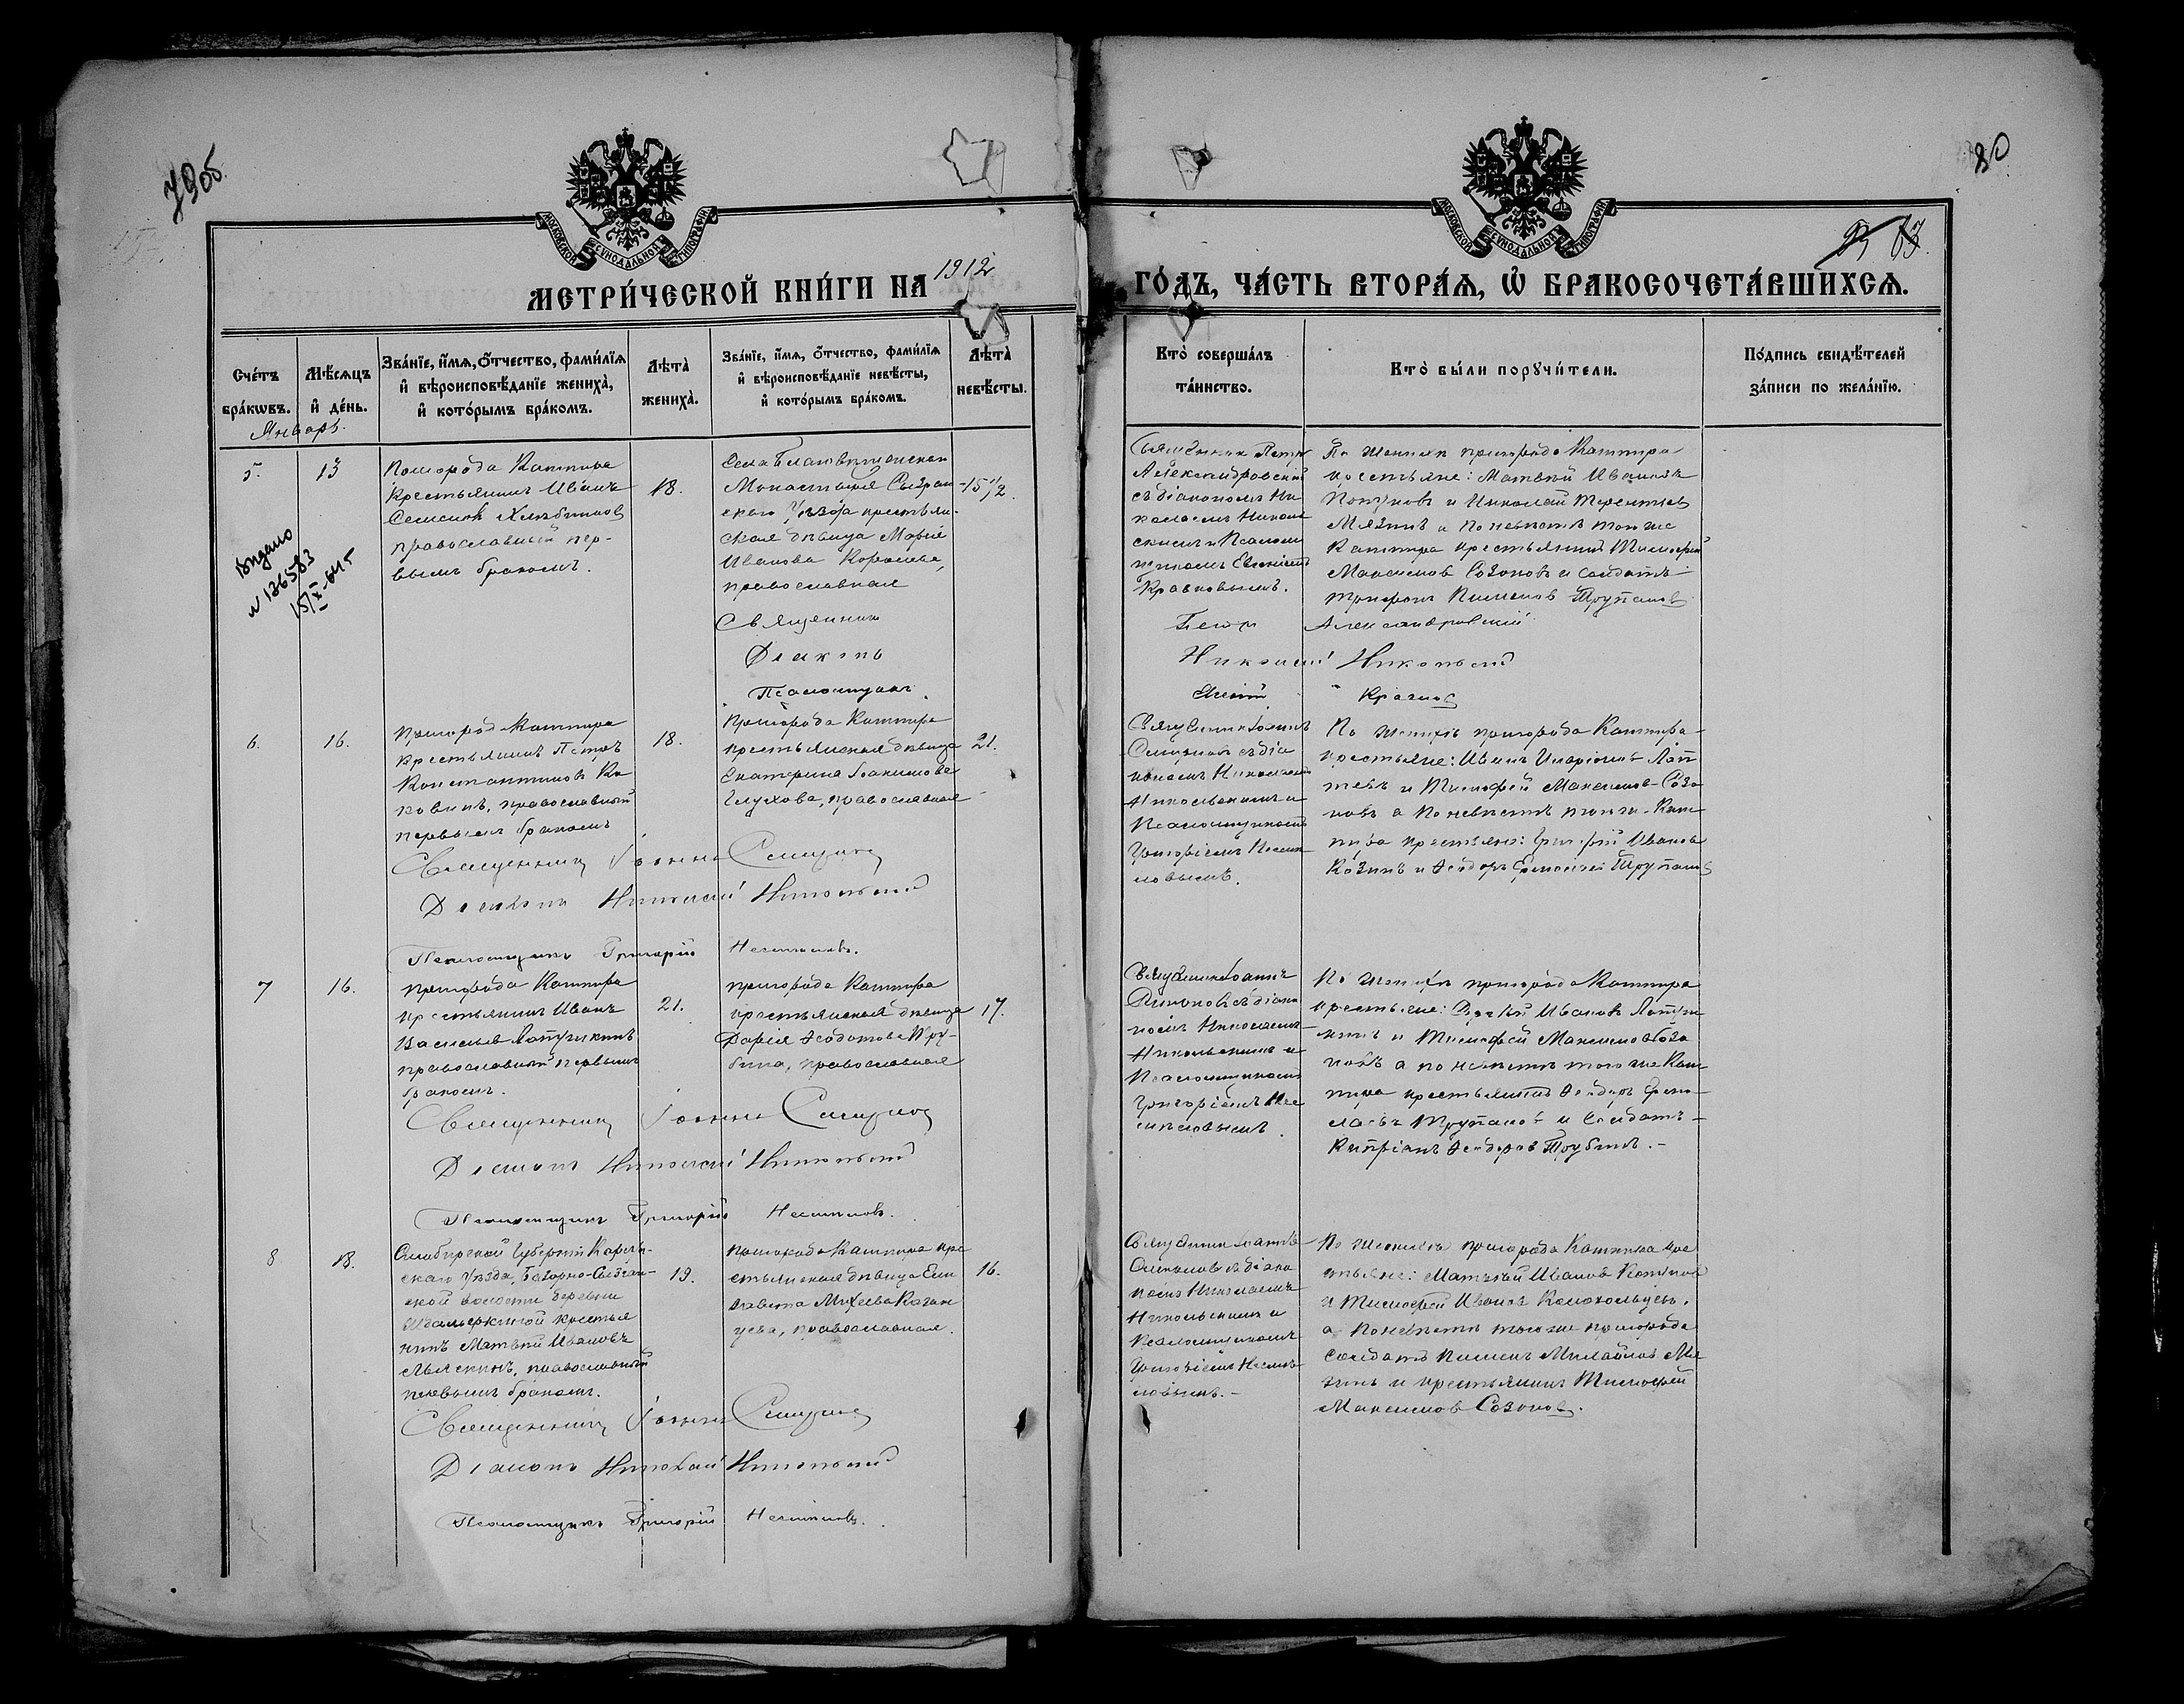 79об.
80
МОСКОВСКОЙ СѴНОДАЛЬНОЙ ТИПОГРАФІИ
МОСКОВСКОЙ СѴНОДАЛЬНОЙ ТИПОГРАФІИ
63.
МЕТРИ́ЧЕСКОЙ КНИ́ГИ НА 1912 ГО́ДЪ, ЧА́СТЬ ВТОРА́Ѧ, Ѽ БРАКОСОЧЕТА́ВШИХСѦ.
Сче́тъ бра́кѡвъ.
Мѣ́сѧцъ и҆ де́нь.
Зва́нїе, и҆́мѧ, ѻ҆́тчество, фами́лїѧ
и҆ вѣроисповѣ́данїе жениха̀,
и҆ кото́рымъ бра́комъ.
Лѣта̀
жениха̀.
Зва́нїе, и҆́мѧ, ѻ҆́тчество, фами́лїѧ
и҆ вѣроисповѣ́данїе невѣ́сты,
и҆ кото́рымъ бра́комъ.
Лѣта̀
невѣ́сты.
Кто̀ соверша́лъ
та́инство.
Кто̀ бы́ли порꙋчи́тели.
По́дпись свидѣ́телей
за́писи по жела́нїю.
Январь.
5.
13
Пригорода Кашпира
крестьянинъ Иванъ
Семеновъ Хлѣбниковъ
православный пер-
вымъ бракомъ.
18.
Села Благовѣщенскаго
Монастыря Сызран-
скаго Уѣзда крестьян-
ская дѣвица Марія
Иванова Королева,
православная
15 1/2.
Священникъ Петръ
Александровскій
съ діакономъ Ни-
колаемъ Николь-
скимъ и Псалом-
щикомъ
Кравковымъ.
По женихѣ пригорода Кашпира
крестьяне: Матвѣй Ивановъ
и Николай Терентьевъ
Мязинъ а по невѣстѣ того же
Кашпира крестьянинъ Тимофей
Максимовъ Созоновъ и солдатъ
Трифонъ Пименовъ Трупаковъ
Выдано
№ 136583
15/X-64 г
Священникъ Петръ Александровскій
Діаконъ Николай Никольскій
Псаломщикъ
6.
16.
Пригорода Кашпира
крестьянинъ Петръ
Константиновъ Ко-
ковинъ, православный
первымъ бракомъ
18.
Пригорода Кашпира
крестьянская дѣвица
Екатерина Іоакимова
Глухова, православная
21.
Священникъ Іоаннъ
Смирновъ съ діа-
кономъ Николаемъ
Никольскимъ и
Псаломщикомъ
Григоріемъ Несмѣ-
ловымъ.
По женихѣ пригорода Кашпира
крестьяне: Иванъ Иларіоновъ Лап-
тевъ и Тимофей Максимовъ Созо-
новъ а по невѣстѣ того же Каш-
пира крестьяне: Григорій Ивановъ
Козинъ и Ѳеодоръ Ермолаевъ Трупаковъ
Священникъ Іоаннъ Смирновъ
Діаконъ Николай Никольскій
Псаломщикъ Григорій Несмѣловъ.
7
16.
Пригорода Кашпира
крестьянинъ Иванъ
Васильевъ Лапушкинъ
православный первымъ
бракомъ.
21.
Пригорода Кашпира
крестьянская дѣвица
Дарія Ѳеодотова Тру-
бина, православная
17.
Священникъ Іоаннъ
Смирновъ съ діако-
номъ Николаемъ
Никольскимъ и
Псаломщикомъ
Григоріемъ Нес-
мѣловымъ.
По женихѣ пригорода Кашпира
крестьяне: Ивановъ Лапуш-
кинъ и Тимофей Максимовъ Созо-
новъ а по невѣстѣ того же Каш-
пира крестьянинъ Ѳеодоръ Ермо-
лаевъ Трупаковъ и Солдатъ
Кипріанъ Ѳеодоровъ Трубинъ.
Священникъ Іоаннъ Смирновъ
Діаконъ Николай Никольскій
Псаломщикъ Григорій Несмѣловъ.
8
18.
Симбирской Губерніи Корсун-
скаго Уѣзда,
ской волости деревни
крестья-
нинъ Матвѣй Ивановъ
православный
первымъ бракомъ.
19.
Пригорода Кашпира кре-
стьянская дѣвица Ели-
завета Михеева Казан-
цева, православная.
16.
Священникъ Іоаннъ
Смирновъ съ діако-
номъ Николаемъ
Никольскимъ и
Псаломщикомъ
Григоріемъ Несмѣ-
ловымъ.
По женихѣ пригорода Кашпира кре-
стьяне: Матвѣй Ивановъ
и Тимофей Ивановъ Колокольцевъ,
а по невѣстѣ того же пригорода
солдатъ Пименъ Михайловъ Мя-
зинъ и крестьянинъ Тимофей
Максимовъ Созоновъ.
Священникъ Іоаннъ Смирновъ
Діаконъ Николай Никольскій
Псаломщикъ Григорій Несмѣловъ.